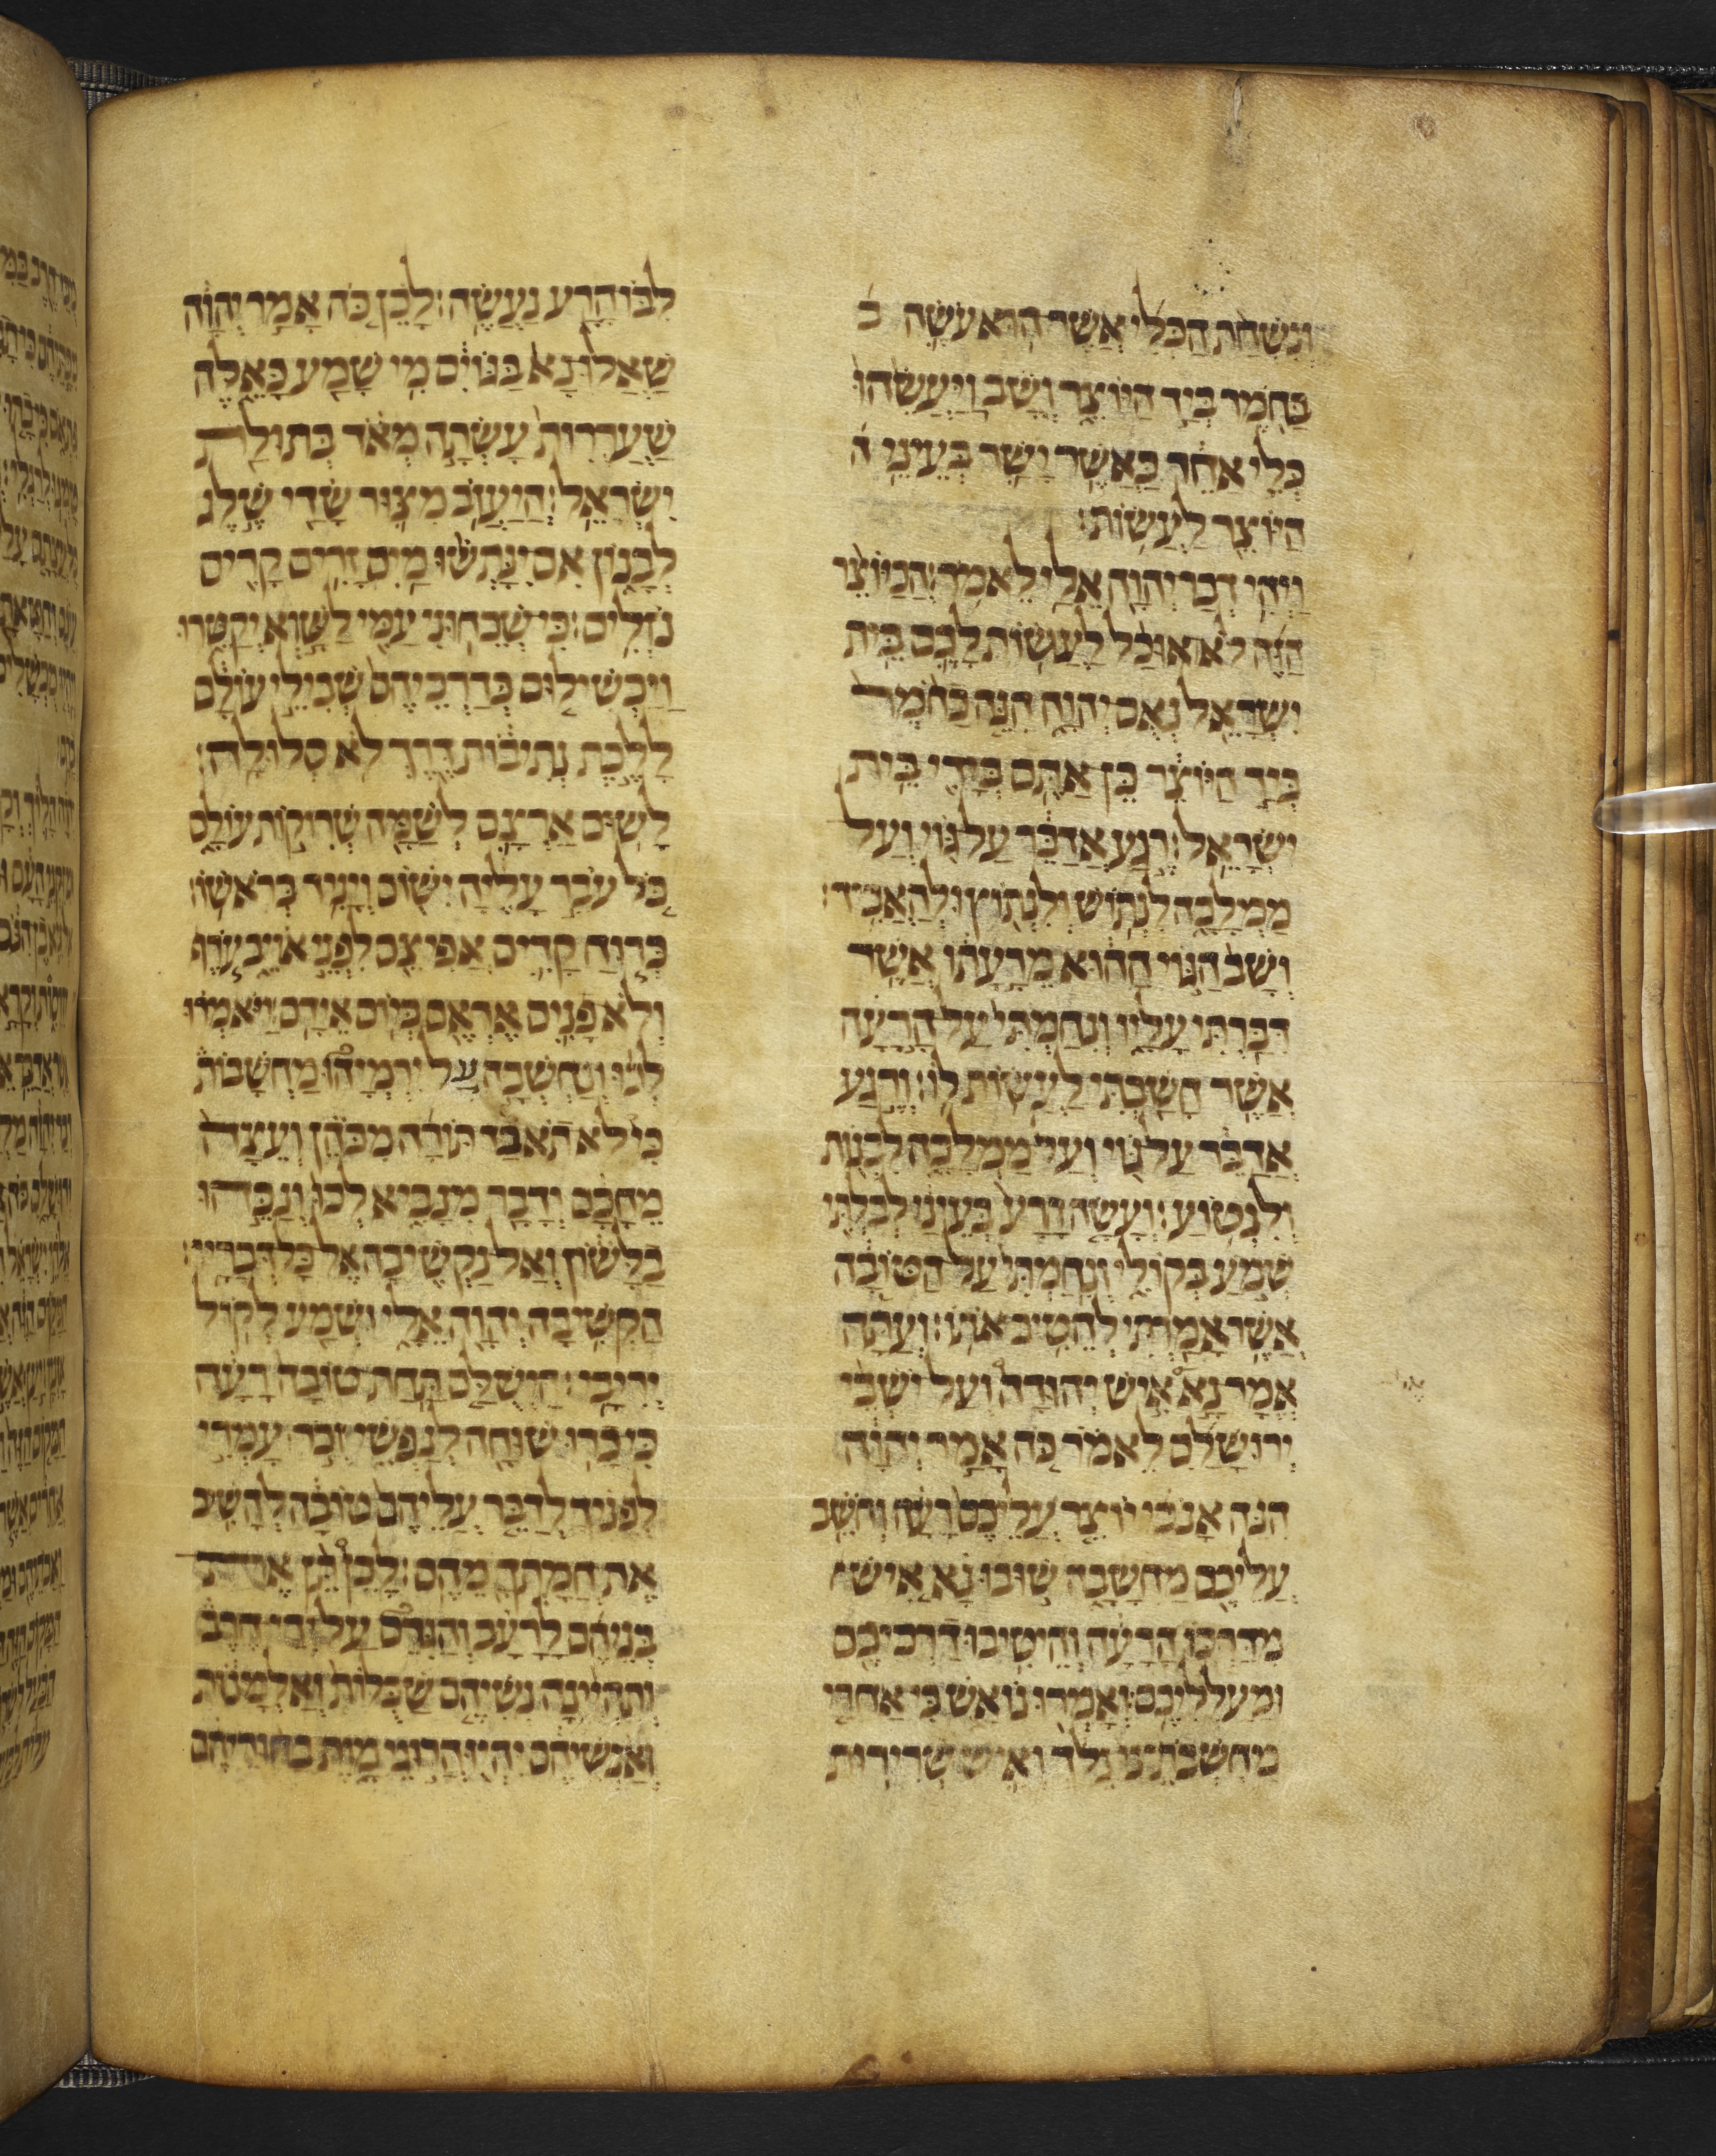 ונשחת הכלי אשר הוא עשה ב
בחמר ביד היוצר ושב ויעשהו
כלי אחר כאשר ישר בעיני ה
היוצר לעשות׃
ויהי דבר יהוה אלי לאמר׃ הכיוצר
הזה לא אוכל לעשות לכם בית
ישראל נאם יהוה הנה כחמר
ביד היוצר כן אתם בידי בית
ישראל׃ רגע אדבר על גוי ועל
ממלכה לנתוש ולנתוץ ולהאביד׃
ושב הגוי ההוא מרעתו אשר
דברתי עליו ונחמתי על הרעה
אשר חשבתי לעשות לו׃ ורגע
אדבר על גוי ועל ממלכה לבנות
ולנטוע׃ ועשה הרע בעיני לבלתי
שמע בקולי ונחמתי על הטובה
אשר אמרתי להטיב אתו׃ ועתה
אמר נא איש יהודה ועל ישבי
ירושלם לאמר כה אמר יהוה
הנה אנכי יוצר עליכם רעה וחשב
עליכם מחשבה שובו נא איש
מדרכו הרעה והיטיבו דרכיכם
ומעלליכם׃ ואמרו נואש כי אחרי
מחשבתינו נלך ואיש שרירות
לבו הרע נעשה׃ לכן כה אמר יהוה
שאלו נא בגוים מי שמע כאלה
שעררות עשתה מאד בתולת
ישראל׃ היעזב מצור שדי שלג
לבנון אם ינתשו מים זרים קרים
נזלים׃ כי שכחוני עמי לשוא יקטרו
ויכשילום בדרכיהם שבילי עולם
ללכת נתיבות דרך לא סלולה׃
לשום ארצם לשמה שריקות עולם
כל עבר עליה ישום ויניד בראשו׃
כרוח קדים אפיצם לפני אויב ערף
ולא פנים אראם ביום אידם׃ ויאמרו
לכו ונחשבה על ירמיהו מחשבות
כי לא תאבד תורה מכהן ועצה
מחכם ודבר מנביא לכו ונכהו
בלשון ואל נקשיבה אל כל דבריו׃
הקשיבה יהוה אלי ושמע לקול
יריבי׃ הישלם תחת טובה רעה
כי כרו שוחה לנפשי זכר עמדי
לפניך לדבר עליהם טובה להשיב
את חמתך מהם׃ לכן תן את
בניהם לרעב והגרם על ידי חרב
ותהיינה נשיהם שכלות ואלמנות
ואנשיהם יהיו הרגי מות בחוריהם